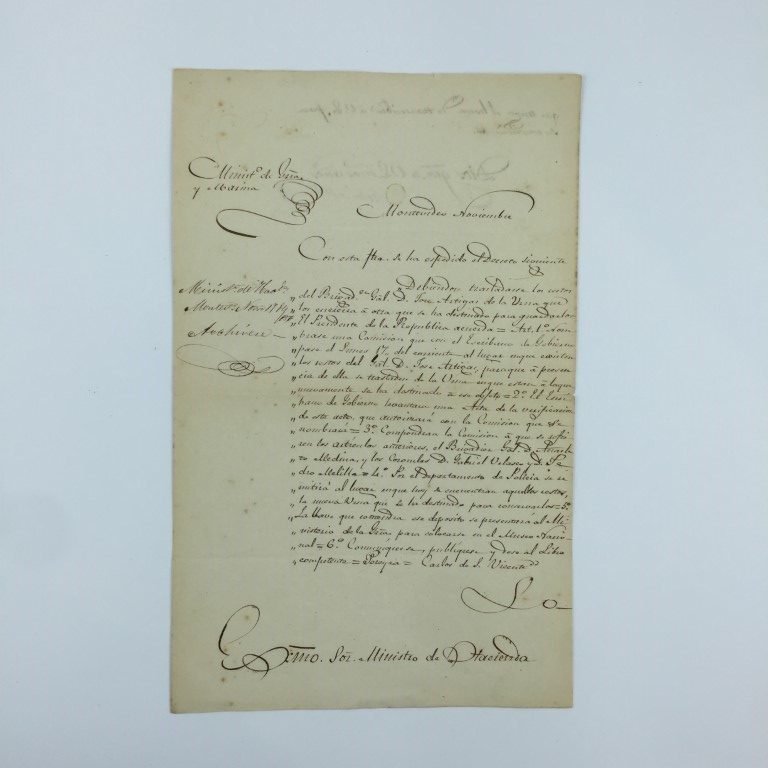 Minist.º de Grra
y Marina
Montevideo Noviembre
Con esta fha. se ha espedido el Decreto siguiente
Minist.º de Hacd.
Montev.º Nov.
Archívese
„ Debiendo trasladarse los restos
„ del Brigad.er Gral. D. Jose Artigas de la Urna que
„ los encierra á otra que se ha destinado para guardarlos
„ El Presidente de la Republica acuerda = Art. 1.º Nom
„ brase una Comision que con el Escribano de Gobierno
„ pase el Lunes 17 del corriente al lugar en que existen
„ los restos del Gral. D. Jose Artigas, para que á presen
„ cia de ella se trasladen de la Urna en que estan á la que
„ nuevamente se ha destinado á ese objeto = 2.º El Escri
„ bano de Gobierno levantara una Acta de la verificacion
„ de este acto, que autorizara con la Comision que se
„ nombrará = 3.º Compondran la Comision á que se refie
„ ren los articulos anteriores, el Brigadier Gral. D. Anacle
„ to Medina, y los Coroneles D. Gabriel Velasco y D. Pe
„ dro Melilla = 4.º Por el Departamento de Policia se re
„ mitirá al lugar en que hoy se encuentran aquellos restos,
„ la nueva Urna que se ha destinado para conservarlos = 5.º
„ La llave que contendra ese deposito se presentará al Mi
„ nisterio de la Grra. para colocarse en el Museo Nacio
„ nal = 6.º Comuniquese, publiquese y dese al Libro
„ competente = Pereyra = Carlos de S. Vicente
Lo
Exmo. Sor. Ministro de Hacienda